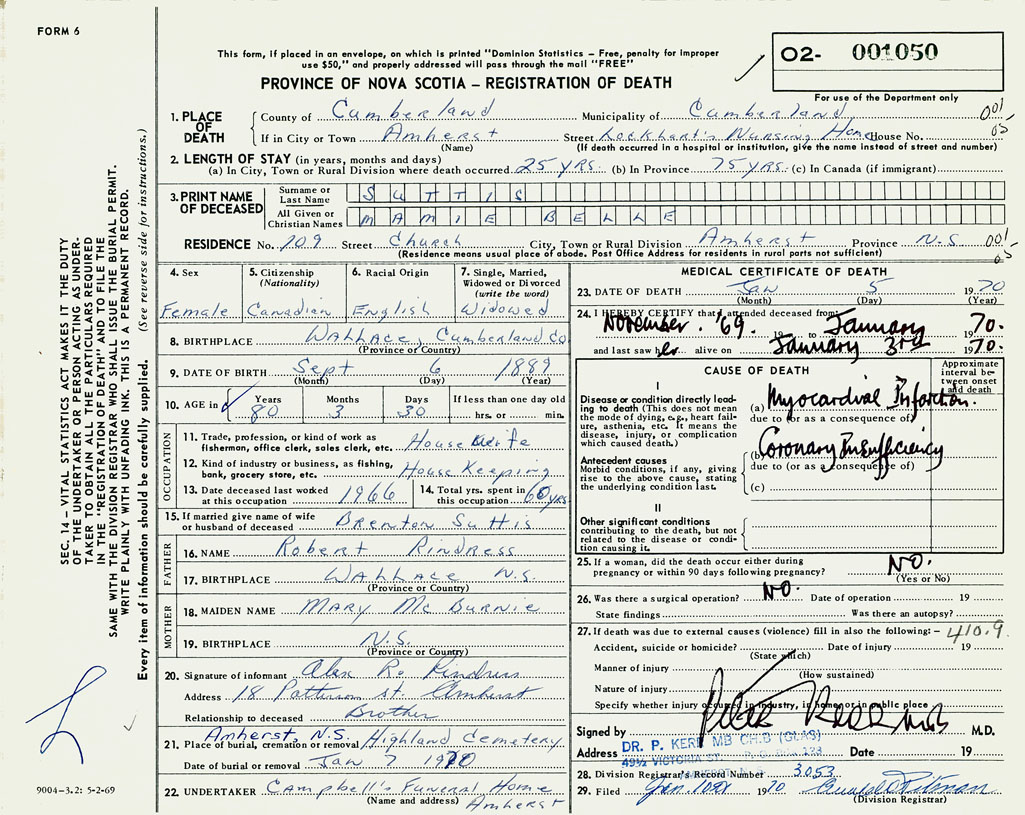 FORM 6
This form, if placed in an envelope, on which is printed "Dominion Statistics – Free, penalty for improper
use $50," and properly addressed will pass through the mail "FREE"
PROVINCE OF NOVA SCOTIA – REGISTRATION OF DEATH
O2- 001050
For use of the Department only
1. PLACE OF DEATH
County of Cumberland Municipality of Cumberland 001
If in City or Town Amherst Street Lockhart's Nursing Home House No. 05
(Name) (If death occurred in a hospital or institution, give the name instead of street and number)
2. LENGTH OF STAY (in years, months and days)
(a) In City, Town or Rural Division where death occurred 25 YRS. (b) In Province 75 YRS. (c) In Canada (if immigrant)
3. PRINT NAME OF DECEASED
Surname or Last Name SUTTIS
All Given or Christian Names MAMIE BELLE
RESIDENCE No. 709 Street Church City, Town or Rural Division Amherst Province N.S 001
(Residence means usual place of abode. Post Office Address for residents in rural parts not sufficient) 05
4. Sex
Female
5. Citizenship
(Nationality)
Canadian
6. Racial Origin
English
7. Single, Married,
Widowed or Divorced
(write the word)
Widowed
8. BIRTHPLACE Wallace, Cumberland Co
(Province or Country)
9. DATE OF BIRTH Sept 6 1889
(Month) (Day) (Year)
10. AGE in Years Months Days If less than one day old
80 3 30 hrs. or min.
OCCUPATION
11. Trade, profession, or kind of work as
fisherman, office clerk, sales clerk, etc. House Wife
12. Kind of industry or business, as fishing,
bank, grocery store, etc. House Keeping
13. Date deceased last worked
at this occupation 1966
14. Total yrs. spent in
this occupation 60 YRS
15. If married give name of wife
or husband of deceased Brenton Suttis
FATHER
16. NAME Robert Rindress
17. BIRTHPLACE Wallace N.S.
(Province or Country)
MOTHER
18. MAIDEN NAME Mary Mc Burnie
19. BIRTHPLACE N.S.
(Province or Country)
20. Signature of informant Alex R. Rindress
Address 18 Patterson St. Amherst
Relationship to deceased Brother
Amherst, N.S.
21. Place of burial, cremation or removal Highland Cemetery
Date of burial or removal Jan 7 1970
22. UNDERTAKER Campbell's Funeral Home
(Name and address) Amherst
MEDICAL CERTIFICATE OF DEATH
23. DATE OF DEATH Jan 5 1970
(Month) (Day) (Year)
24. I HEREBY CERTIFY that I attended deceased from
November. '69. 19 to January 1970.
and last saw her alive on January 3rd 1970.
CAUSE OF DEATH
Approximate interval between onset and death
I
Disease or condition directly leading to death (This does not mean the mode of dying, e.g., heart failure, asthenia, etc. It means the disease, injury, or complication which caused death.)
(a) Myocardial Infarction.
due to (or as a consequence of)
Antecedent causes
Morbid conditions, if any, giving rise to the above cause, stating the underlying condition last.
(b) Coronary Insufficiency
due to (or as a consequence of)
(c)
II
Other significant conditions
contributing to the death, but not related to the disease or condition causing it.
25. If a woman, did the death occur either during
pregnancy or within 90 days following pregnancy? NO.
(Yes or No)
26. Was there a surgical operation? NO. Date of operation 19
State findings Was there an autopsy?
27. If death was due to external causes (violence) fill in also the following: – 410.9
Accident, suicide or homicide? Date of injury 19
(State which)
Manner of injury
(How sustained)
Nature of injury
Specify whether injury occurred in industry, in home or in public place
Signed by Peter Kerr MB M.D.
Address DR. P. KERR MB CH.B (GLAS) Date 19
49½ VICTORIA ST.
28. Division Registrar's Record Number 3053
29. Filed Jan. 10th 1970
(Division Registrar)
SEC. 14 – VITAL STATISTICS ACT MAKES IT THE DUTY
OF THE UNDERTAKER OR PERSON ACTING AS UNDERTAKER TO OBTAIN ALL THE PARTICULARS REQUIRED
IN THE "REGISTRATION OF DEATH" AND TO FILE THE
SAME WITH THE DIVISION REGISTRAR WHO SHALL ISSUE THE BURIAL PERMIT.
WRITE PLAINLY WITH UNFADING INK. THIS IS A PERMANENT RECORD.
Every item of information should be carefully supplied. (See reverse side for instructions.)
9004–3.2: 5-2-69